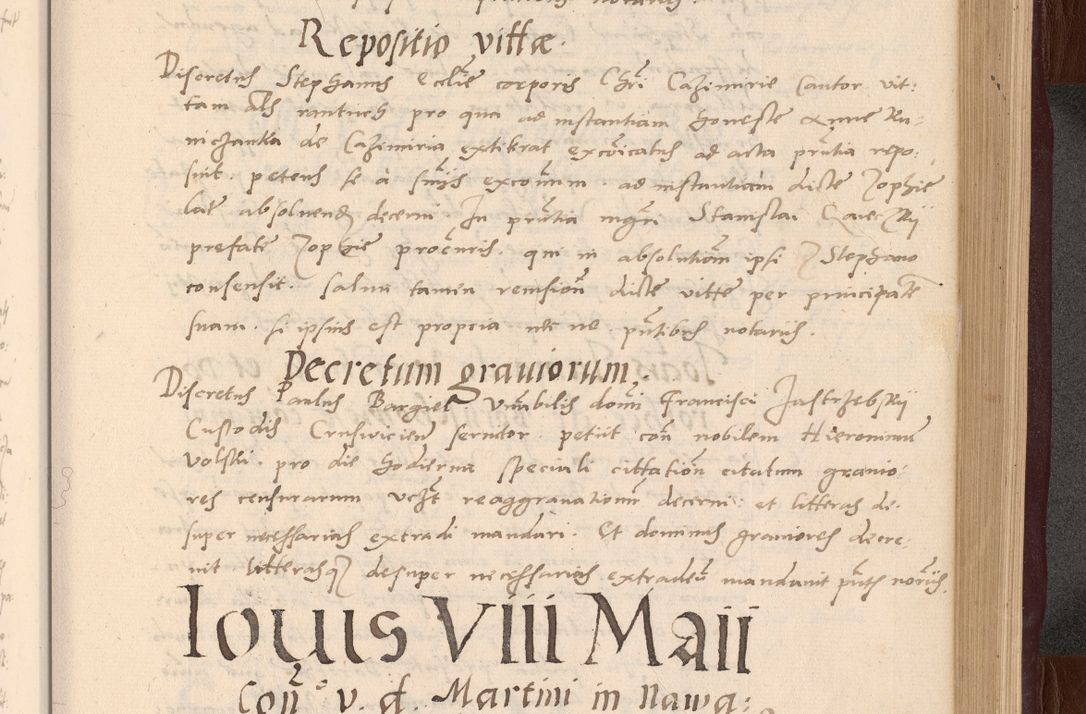 Repositio vittæ.
Discretus Stephanus Ecclie corporis Chri Cazimirie Cantor vit:
tam als rantuch pro qua ad instantiam honeste Anne Ru:
nichanka de Cazimiria extiterat excōicatus ad acta pñtia repo:
suit. petens se a snījs excoīum. ad instantiam dicte Zophie
lat absoluend decerni In pñtia mgri Stanislai
prefate Zophie procuris. qui in absolutiōm ipsi Stephano
consensit. saluu tamen remissiōn dicte vitte per principale
suam. si ipsius est propria nec ne. pñtibus notarijs.
Decretum grauiorum.
Discretus Paulus Bargiel Vnabilis domi Francisci Jastrzebskij
Custodis Crusvicien seruitor. petijt cōn nobilem Hieronimum
Volski. pro die hodierna speciali cittatiōn citatum grauio:
res censurarum vczt reaggrauationū decerni: et litteras de:
super necessarias extradi mandari. Et dominus grauiores decre:
uit litterasqz desuper necessarias extradeū mandauit pñts notrijs.
Iouis VIII Maii
Coñ v. d. Martini in Nawa: